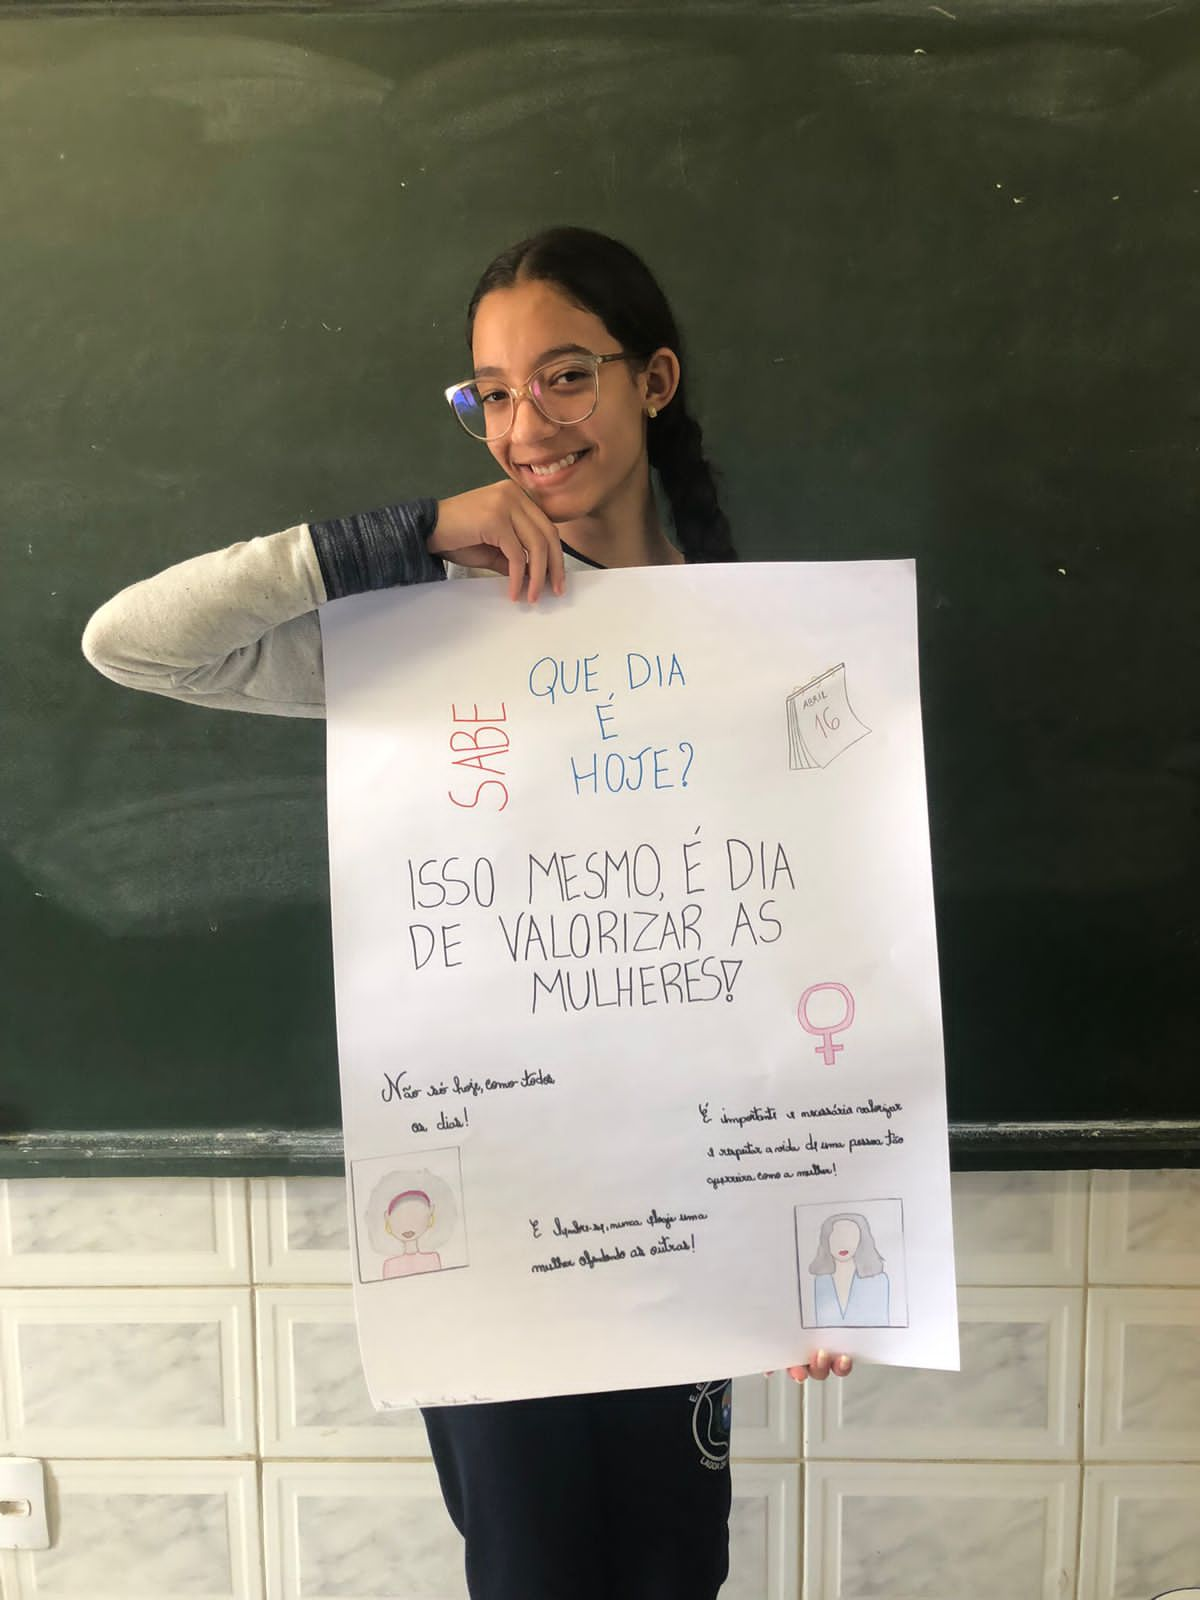 SABE
QUE DIA
É
HOJE?
ABRIL
16
ISSO MESMO, É DIA
DE VALORIZAR AS
MULHERES!
Não só hoje, como todos
os dias!
É importante e necessária valorizar
e respeitar a vida de uma pessoa tão
guerreira como a mulher!
E lembre-se, nunca elogie uma
mulher ofendendo as outras!
LAGOA